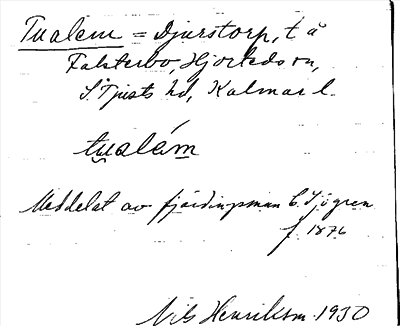 Tualem = Djurstorp, t å
Falsterbo, Hjorteds sn,
S. Tjusts hd, Kalmar l.
tualém
Meddelat av fjärdingsman C. Sjögren
f. 1876
Nils Henriksson 1930